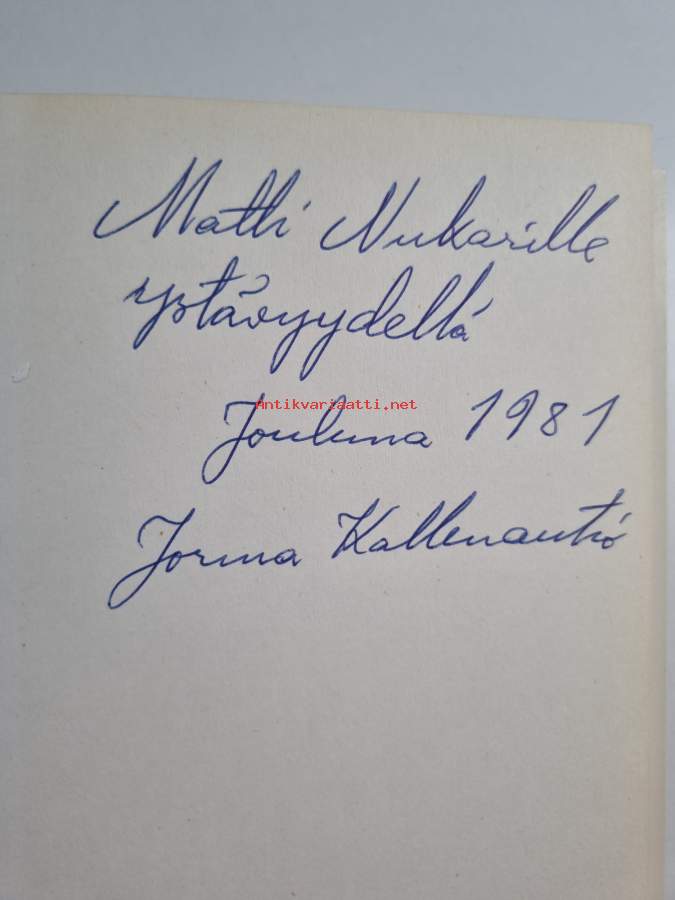 Matti Nukarille
ystävyydellä
Antikvariaatti.net
Jouluna 1981
Jorma Kallenautio